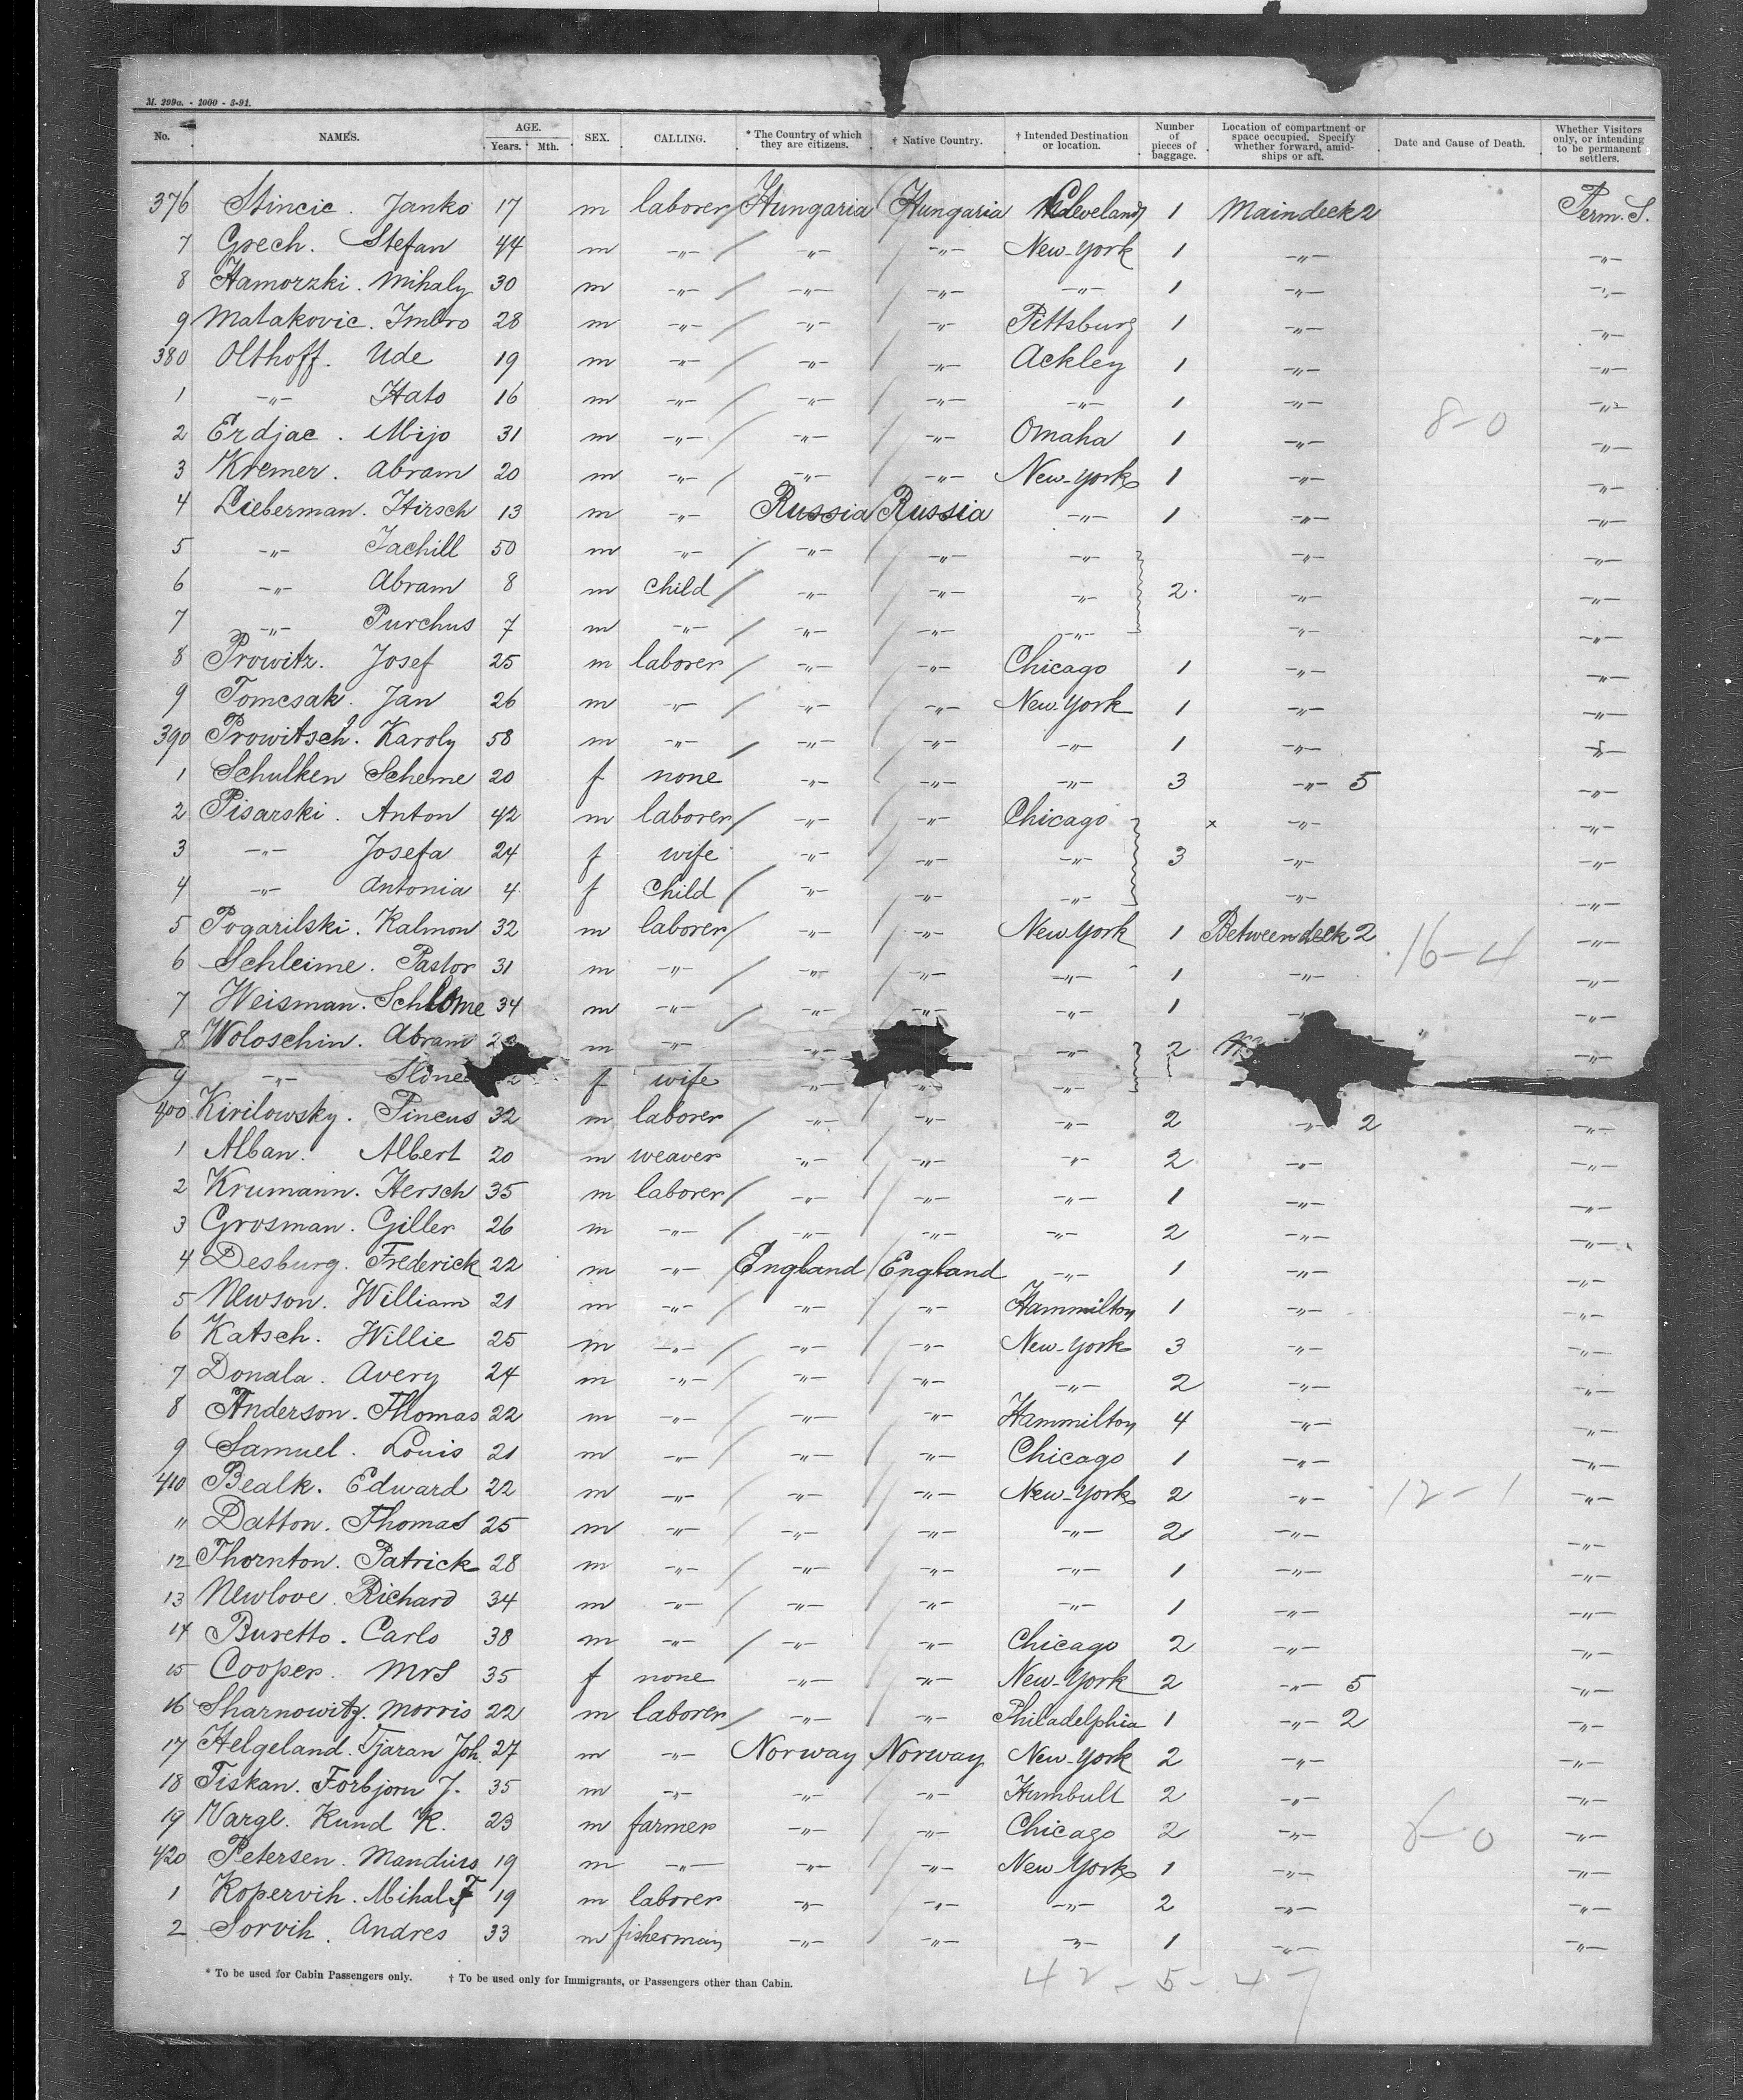 M. 299a. - 1000 - 3-91.
No. NAMES. AGE. Years. Mth. SEX. CALLING. * The Country of which they are citizens. † Native Country. † Intended Destination or location. Number of pieces of baggage. Location of compartment or space occupied. Specify whether forward, amidships or aft. Date and Cause of Death. Whether Visitors only, or intending to be permanent settlers.
376 Stincic. Janko 17 m laborer Hungaria Hungaria Cleveland 1 Maindeck 2 Perm. S.
7 Grech. Stefan 44 m -"- -"- -"- New-York 1 -"- -"-
8 Hamorzki. Mihaly 30 m -"- -"- -"- -"- 1 -"- -"-
9 Matakovic. Imbro 28 m -"- -"- -"- Pittsburg 1 -"- -"-
380 Olthoff. Ude 19 m -"- -"- -"- Ackley 1 -"- -"-
1 -"- Hato 16 m -"- -"- -"- -"- 1 -"- 8-0 -"-
2 Erdjac. Mijo 31 m -"- -"- -"- Omaha 1 -"- -"-
3 Kremer. Abram 20 m -"- -"- -"- New-York 1 -"- -"-
4 Lieberman. Hirsch 13 m -"- Russia Russia -"- 1 -"- -"-
5 -"- Jachill 50 m -"- -"- -"- -"- -"- -"-
6 -"- Abram 8 m child -"- -"- -"- 2. -"- -"-
7 -"- Purchus 7 m -"- -"- -"- -"- -"- -"-
8 Prowitz. Josef 25 m laborer -"- -"- Chicago 1 -"- -"-
9 Tomcsak. Jan 26 m -"- -"- -"- New-York 1 -"- -"-
390 Prowitsch. Karoly 58 m -"- -"- -"- -"- 1 -"- -"-
1 Schulken Scheme 20 f none -"- -"- -"- 3 -"- 5 -"-
2 Pisarski. Anton 42 m laborer -"- -"- Chicago x -"- -"-
3 -"- Josefa 24 f wife -"- -"- -"- 3 -"- -"-
4 -"- Antonia 4 f child -"- -"- -"- -"- -"-
5 Pogarilski. Kalmon 32 m laborer -"- -"- New York 1 Betweendeck 2 16-4 -"-
6 Schleime. Pastor 31 m -"- -"- -"- -"- 1 -"- -"-
7 Weisman. Schlome 34 m -"- -"- -"- -"- 1 -"-
8 Woloschin. Abram m -"- -"- -"- 2 -"-
9 -"- f wife -"- -"- -"-
400 Kirilowsky. Pincus 32 m laborer -"- -"- -"- 2 -"- 2 -"-
1 Alban. Albert 20 m weaver -"- -"- -"- 2 -"- -"-
2 Krumann. Hersch 35 m laborer -"- -"- -"- 1 -"- -"-
3 Grosman. Giller 26 m -"- -"- -"- -"- 2 -"- -"-
4 Desburg. Frederick 22 m -"- England England -"- 1 -"- -"-
5 Newson. William 21 m -"- -"- -"- Hammilton 1 -"- -"-
6 Katsch. Willie 25 m -"- -"- -"- New-York 3 -"- -"-
7 Donala. Avery 24 m -"- -"- -"- -"- 2 -"- -"-
8 Anderson. Thomas 22 m -"- -"- -"- Hammilton 4 -"- -"-
9 Samuel. Louis 21 m -"- -"- -"- Chicago 1 -"- -"-
410 Bealk. Edward 22 m -"- -"- -"- New-York 2 -"- 12-1 -"-
" Datton. Thomas 25 m -"- -"- -"- -"- 2 -"- -"-
12 Thornton. Patrick 28 m -"- -"- -"- -"- 1 -"- -"-
13 Newlove. Richard 34 m -"- -"- -"- -"- 1 -"- -"-
14 Buretto. Carlo 38 m -"- -"- -"- Chicago 2 -"- -"-
15 Cooper. Mrs 35 f none -"- -"- New-York 2 -"- 5 -"-
16 Sharnowitz. Morris 22 m laborer -"- -"- Philadelphia 1 -"- 2 -"-
17 Helgeland. Tjaran Joh. 27 m -"- Norway Norway New-York 2 -"- -"-
18 Tiskan. Torbjorn J. 35 m -"- -"- -"- Humbult 2 -"- -"-
19 Vargl. Kund K. 23 m farmer -"- -"- Chicago 2 -"- 6-0 -"-
420 Petersen. Mandius 19 m -"- -"- -"- New York 1 -"- -"-
1 Kopervih. Mihal T 19 m laborer -"- -"- -"- 2 -"- -"-
2 Sorvih. Andres 33 m fisherman -"- -"- -"- 1 -"- -"-
* To be used for Cabin Passengers only. † To be used only for Immigrants, or Passengers other than Cabin.
42-5-47